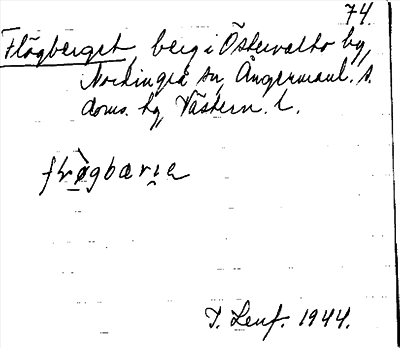 74.
Flögberget, berg i Östervalto by,
Nordingrå sn, Ångermanl. s.
doms. hg, Västern. l.
J. Leuf. 1944.